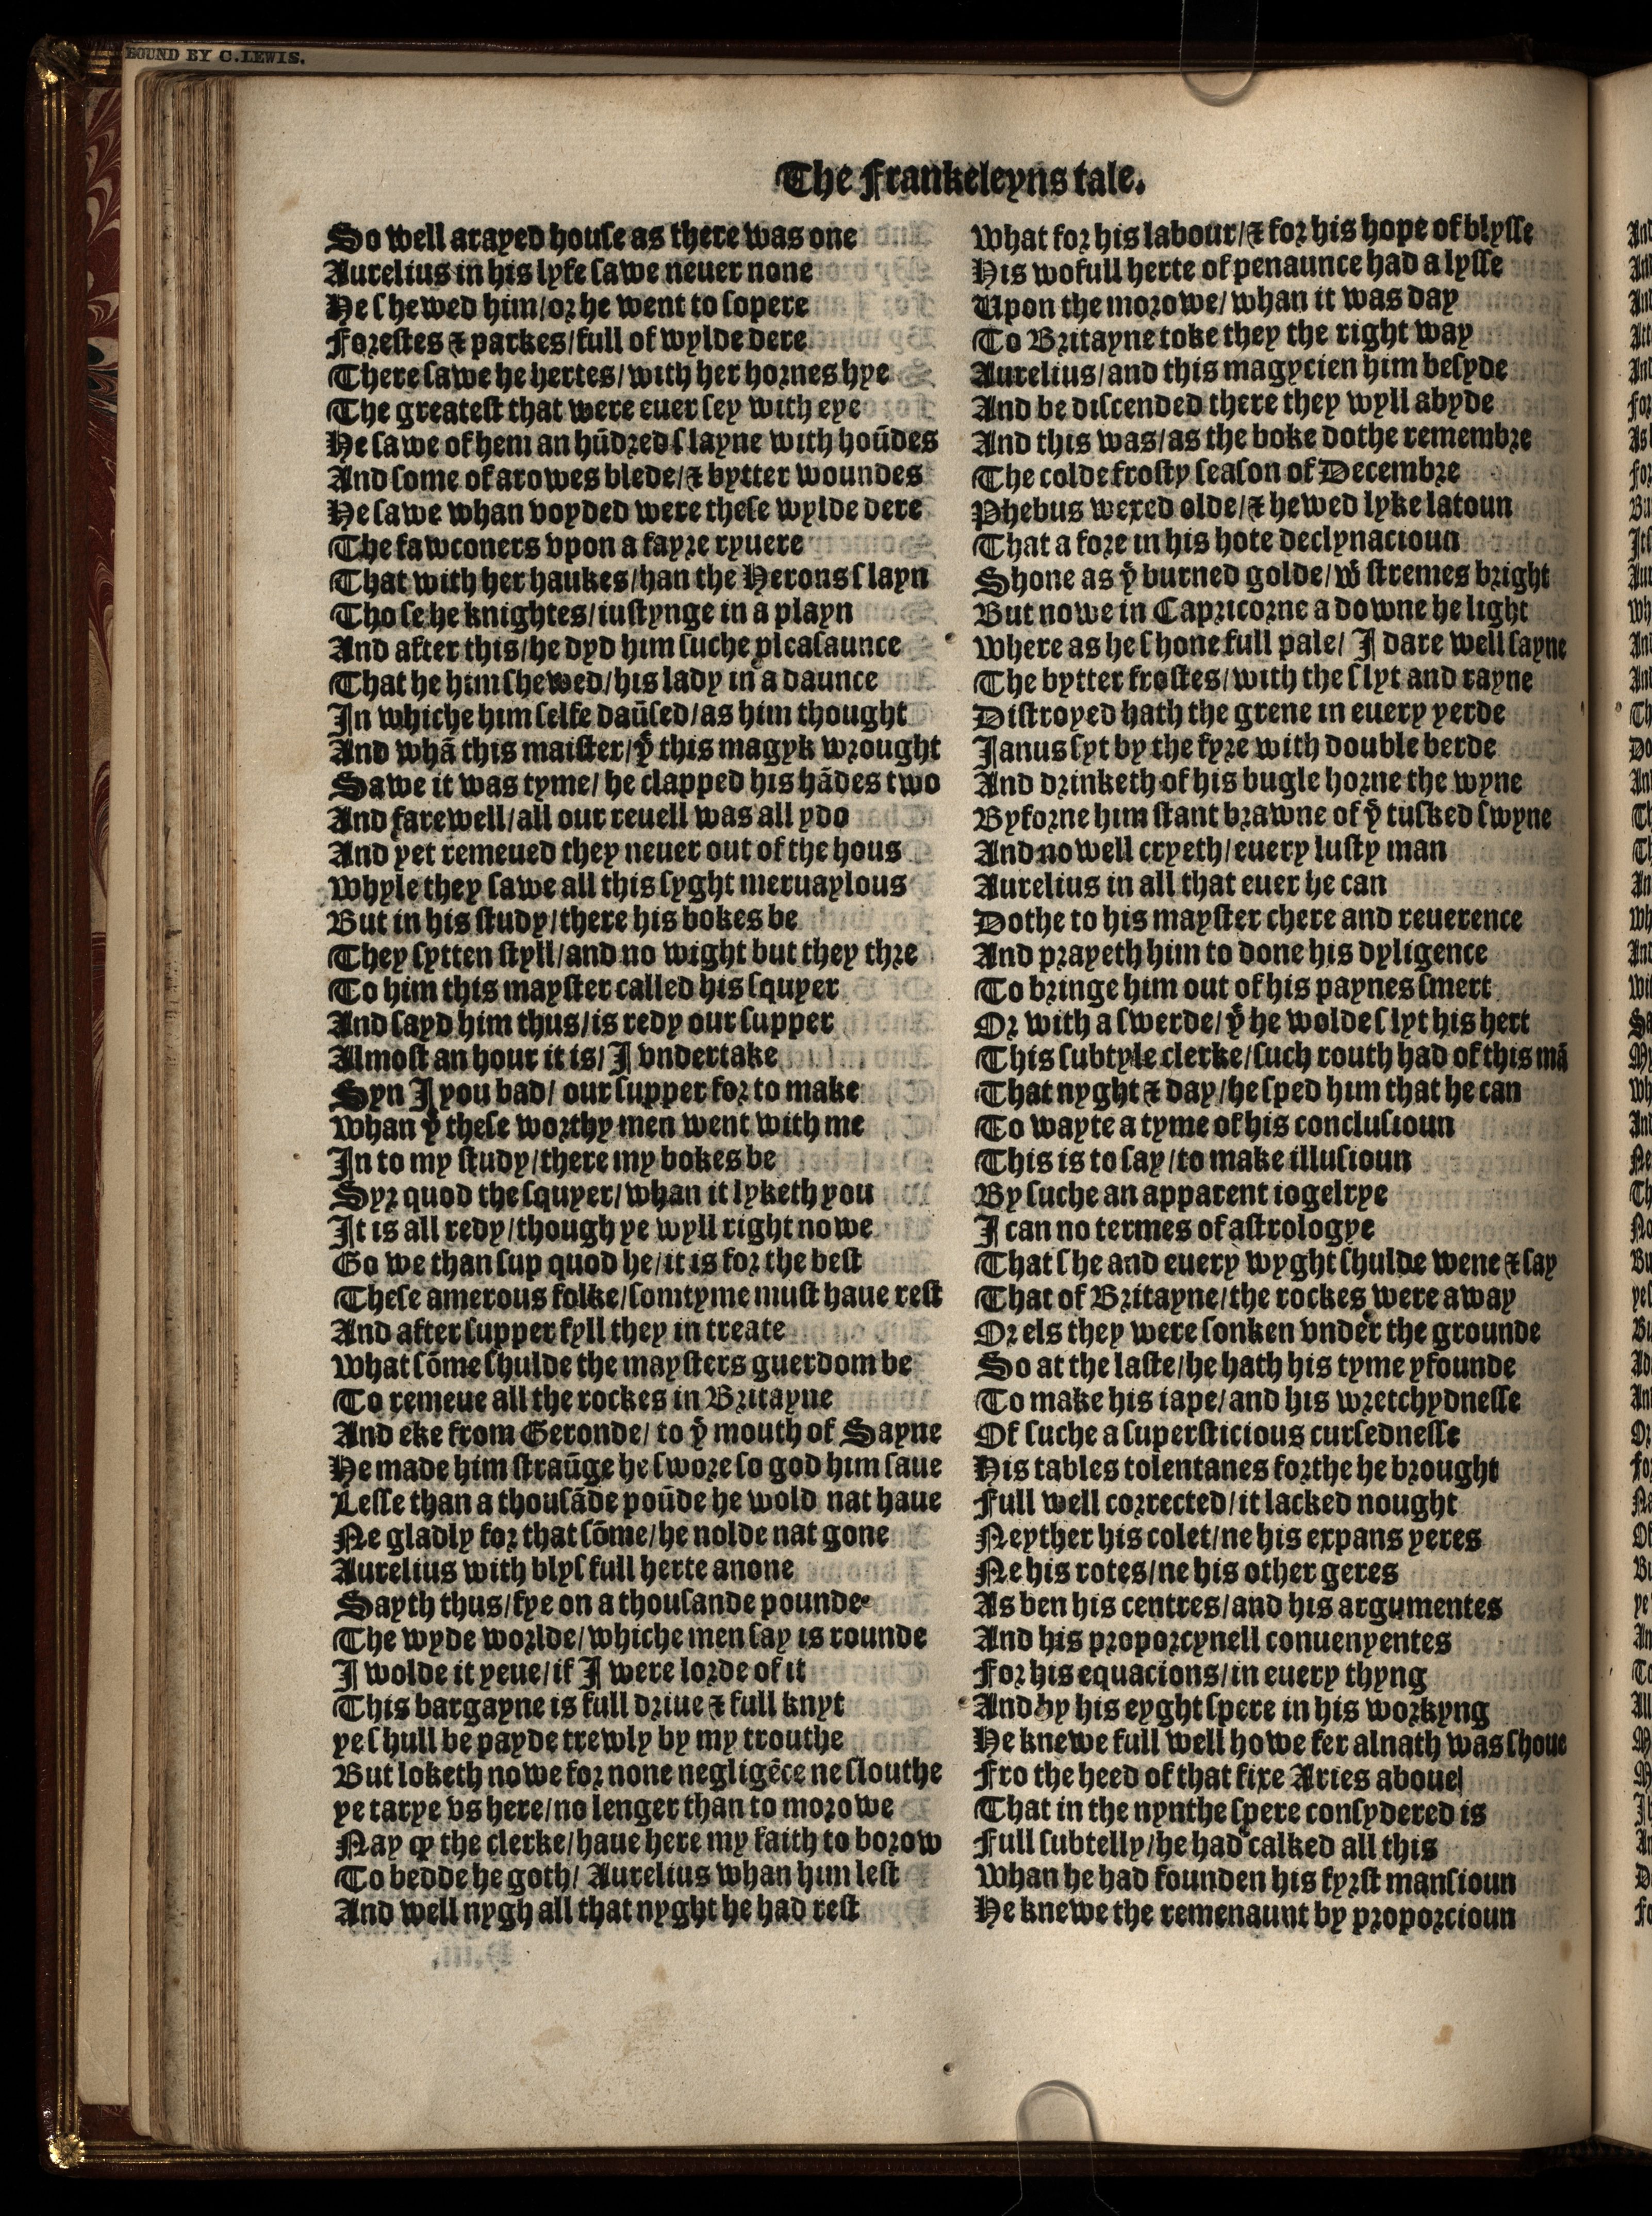 BOUND BY C. LEWIS.
The Frankeleyns tale.
So well arayed house as there was one
Aurelius in his lyfe sawe neuer none
He shewed him/or he went to sopere
Forestes & parkes/full of wylde dere
There sawe he hertes/with her hornes hye
The greatest that were euer sey with eye
He sawe of hem an hūdred slayne with hoūdes
And some of arowes blede/& bytter woundes
He sawe whan voyded were these wylde dere
The fawconers vpon a fayre ryuere
That with her haukes/han the Herons slayn
Tho se he knightes/iustynge in a playn
And after this/he dyd him suche pleasaunce
That he him shewed/his lady in a daunce
In whiche him selfe daūsed/as him thought
And whā this maister/yͭ this magyk wrought
Sawe it was tyme/he clapped his hādes two
And farewell/all our reuell was all ydo
And yet remeued they neuer out of the hous
Whyle they sawe all this syght meruaylous
But in his study/there his bokes be
They sytten styll/and no wight but they thre
To him this mayster called his squyer
And sayd him thus/is redy our supper
Almost an hour it is/I vndertake
Syn I you bad/our supper for to make
Whan yͭ these worthy men went with me
In to my study/there my bokes be
Syr quod the squyer/whan it lyketh you
It is all redy/though ye wyll right nowe
Go we than sup quod he/it is for the best
These amerous folke/somtyme must haue rest
And after supper fyll they in treate
What sōme shulde the maysters guerdom be
To remeue all the rockes in Britayne
And eke from Geronde/to yͤ mouth of Sayne
He made him straūge he swore so god him saue
Lesse than a thousāde poūde he wold nat haue
Ne gladly for that sōme/he nolde nat gone
Aurelius with blysfull herte anone
Sayth thus/fye on a thousande pounde
The wyde worlde/whiche men say is rounde
I wolde it yeue/if I were lorde of it
This bargayne is full driue & full knyt
ye shull be payde trewly by my trouthe
But loketh nowe for none negligēce ne slouthe
ye tarye vs here/no lenger than to morowe
Nay qͩ the clerke/haue here my faith to borow
To bedde he goth/Aurelius whan him lest
And well nygh all that nyght he had rest
What for his labour/& for his hope of blysse
His wofull herte of penaunce had a lysse
Upon the morowe/whan it was day
To Britayne toke they the right way
Aurelius/and this magycien him besyde
And be discended there they wyll abyde
And this was/as the boke dothe remembre
The colde frosty season of Decembre
Phebus wexed olde/& hewed lyke latoun
That a fore in his hote declynacioun
Shone as yͤ burned golde/wͭ stremes bright
But nowe in Capricorne a downe he light
Where as he shone full pale/I dare well sayne
The bytter frostes/with the slyt and rayne
Distroyed hath the grene in euery yerde
Janus syt by the fyre with double berde
And drinketh of his bugle horne the wyne
Byforne him stant brawne of yͤ tusked swyne
And nowell cryeth/euery lusty man
Aurelius in all that euer he can
Dothe to his mayster chere and reuerence
And prayeth him to done his dyligence
To bringe him out of his paynes smert
Or with a swerde/yͭ he wolde slyt his hert
This subtyle clerke/such routh had of this mā
That nyght & day/he sped him that he can
To wayte a tyme of his conclusioun
This is to say/to make illusioun
By suche an apparent iogelrye
I can no termes of astrologye
That she and euery wyght shulde wene & say
That of Britayne/the rockes were away
Or els they were sonken vnder the grounde
So at the laste/he hath his tyme yfounde
To make his iape/and his wretchydnesse
Of suche a supersticious cursednesse
His tables tolentanes forthe he brought
Full well corrected/it lacked nought
Neyther his colet/ne his expans yeres
Ne his rotes/ne his other geres
As ben his centres/and his argumentes
And his proporcynell conuenyentes
For his equacions/in euery thyng
And by his eyght spere in his workyng
He knewe full well howe fer alnath was shoue
Fro the heed of that fixe Aries aboue
That in the nynthe spere consydered is
Full subtelly/he had calked all this
Whan he had founden his fyrst mansioun
He knewe the remenaunt by proporcioun